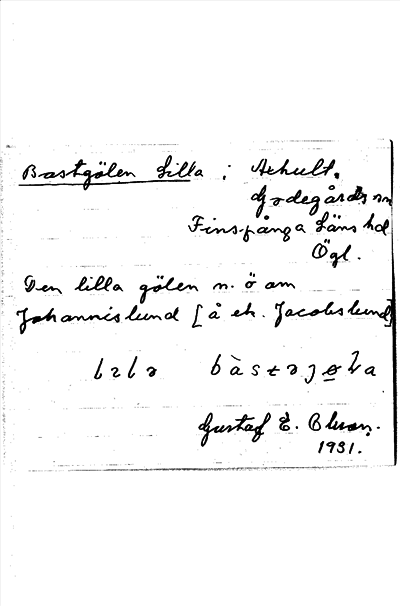 Bastgölen Lilla ; Axhult.
Godegårds sn
Finspånga Läns hd
Ögl.
Den lilla gölen n. ö om
Johannislund [å ek. Jacobslund]
Gustaf E.
1931.